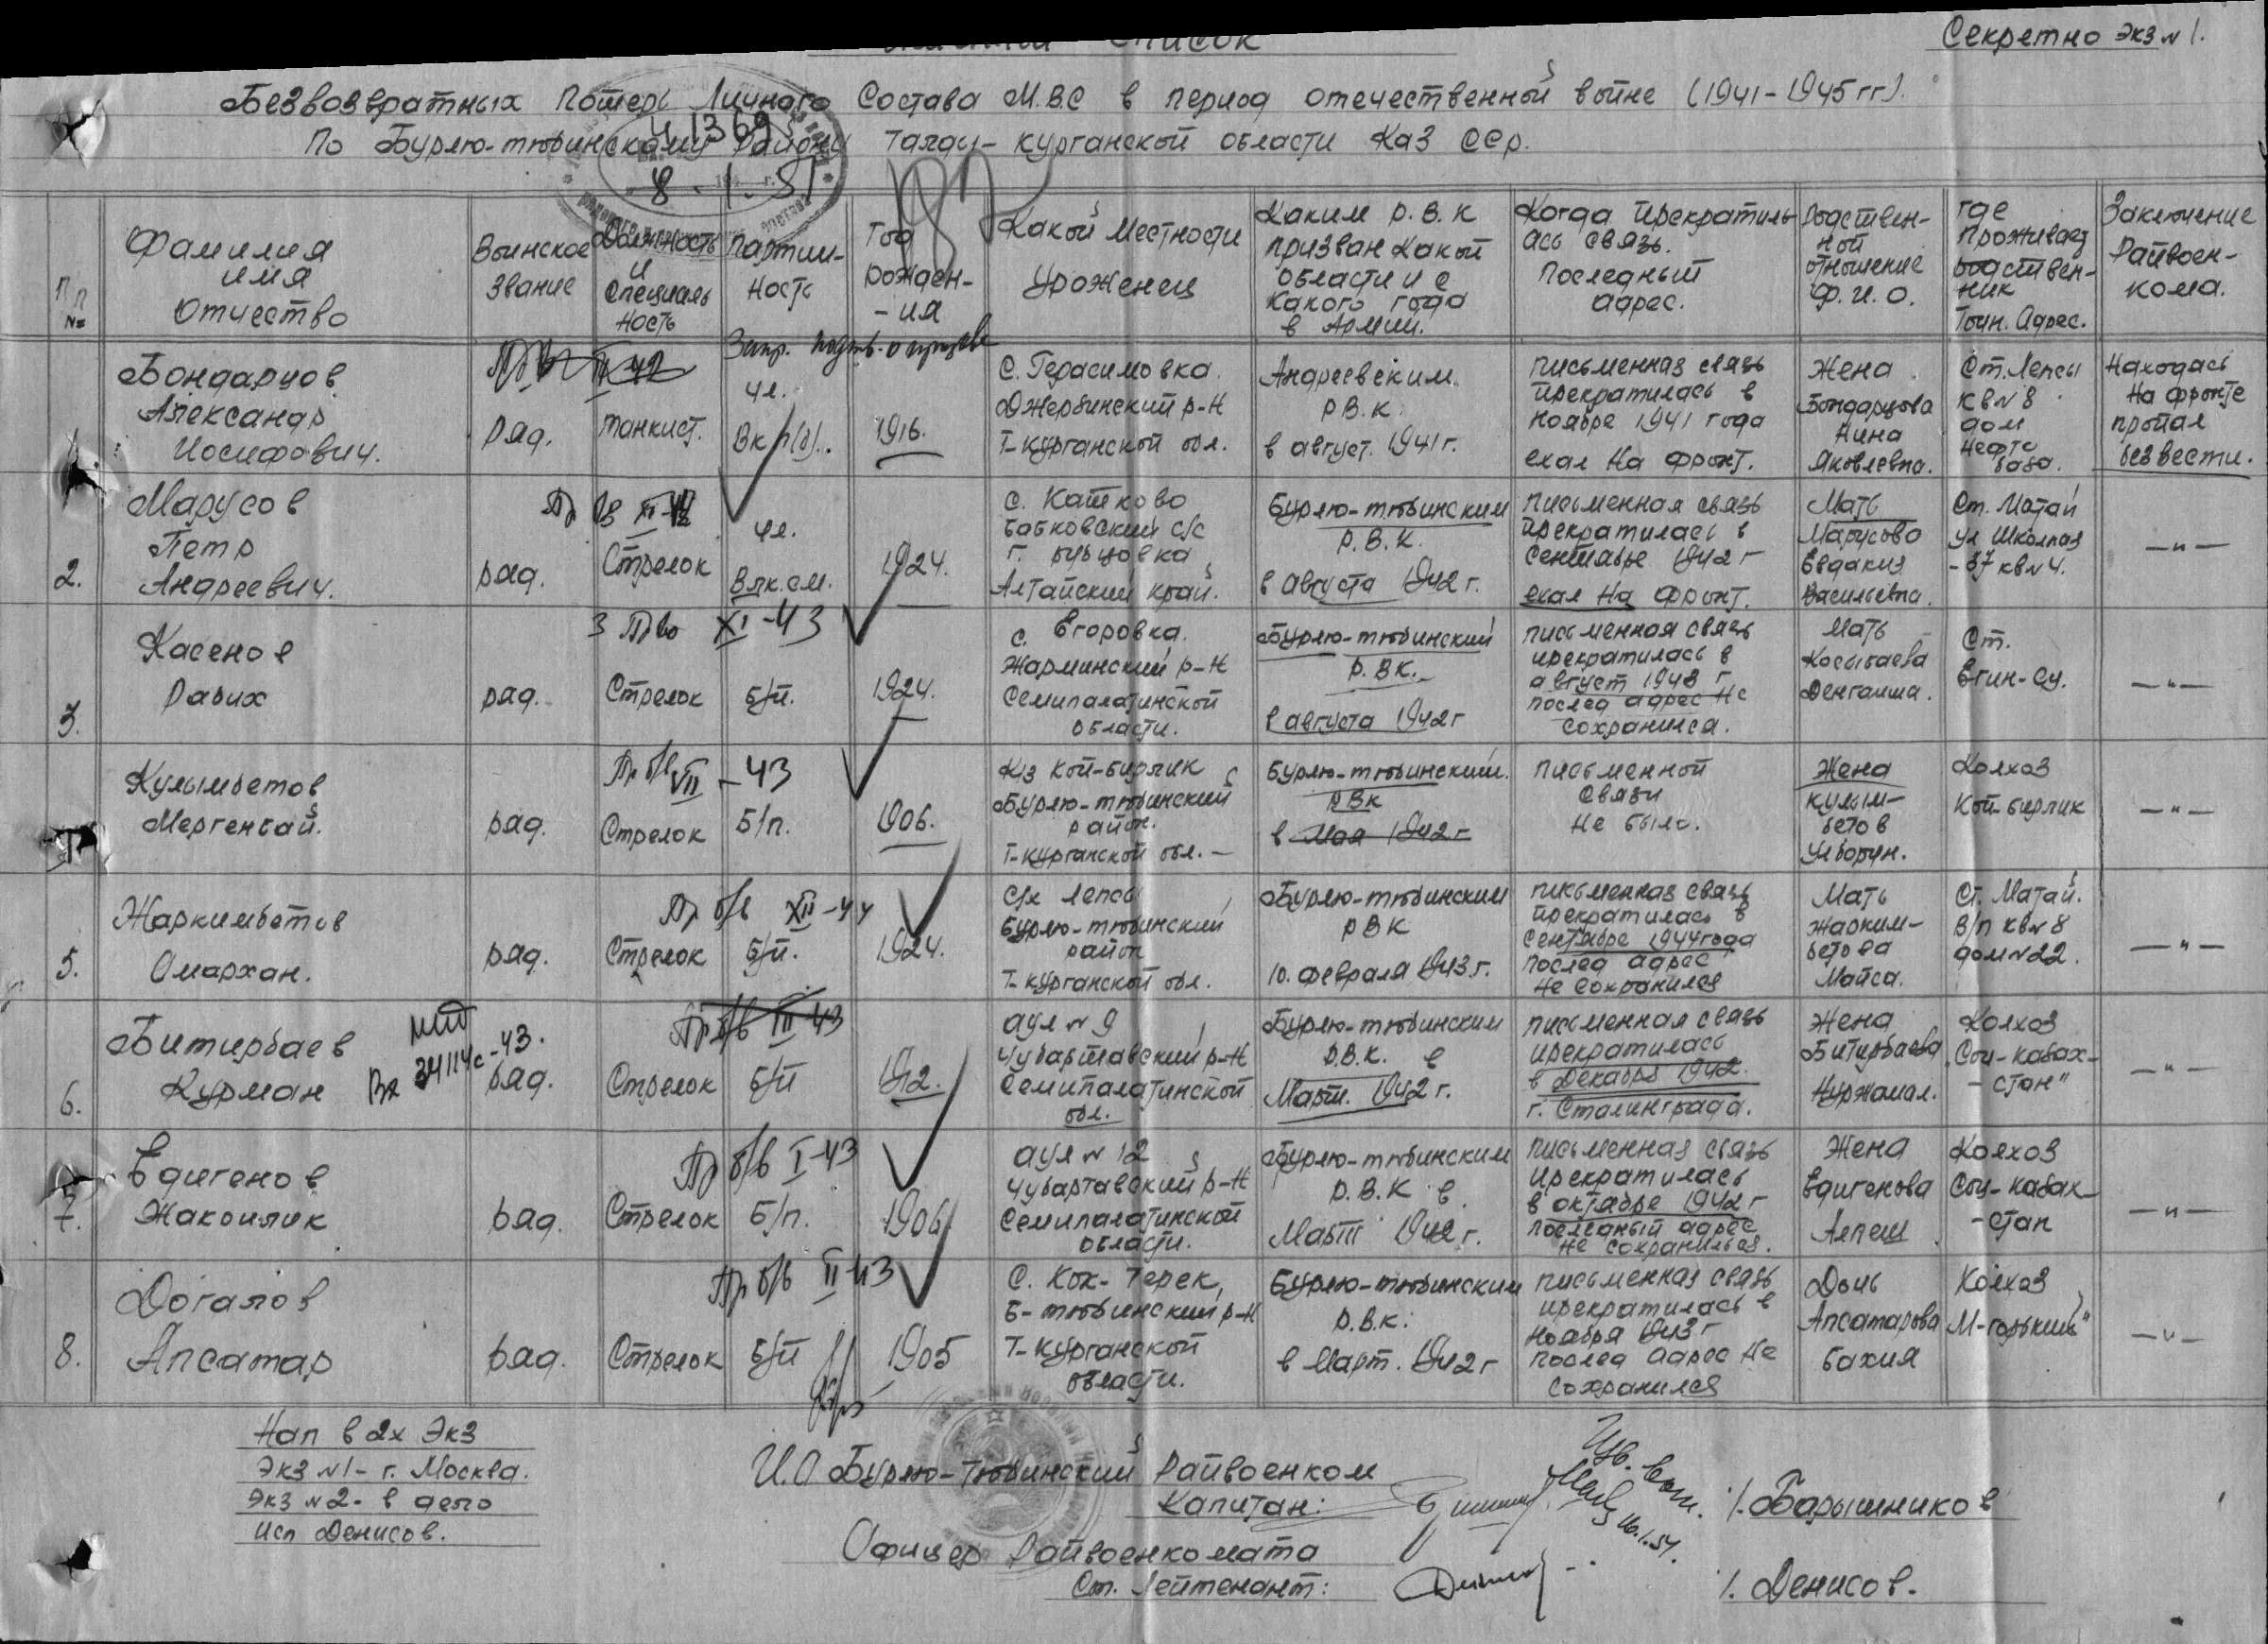 Список
Секретно экз № 1.
Безвозвратных Потерь Личного Состава М.В.С в период отечественной войне (1941-1945 гг).
По Бурлю-тюбинскому району Талды-Курганской области Каз ССр.
41369
8.1.51
№ пп
Фамилия
имя
Отчество
Воинское
Звание
Должность
и
Специаль
ность
Партий-
ность
Год
рожден-
-ия
Какой Местности
Уроженец
Каким Р.В.К
призван Какой
области и с
какого года
в Армии.
Когда Прекратиль
ась связь.
Последный
адрес.
Родствен-
ной
отношение
Ф.И.О.
где
Проживает
родствен-
ник
Точн. Адрес.
Заключение
Райвоен-
кома.
Бондарцов
Александр
Иосифович.
Ряд.
Танкист.
чл.
Вкп(б).
1916.
С. Герасимовка.
Джербинский р-н
Т-курганской обл.
Андреевским
РВ.К.
в август. 1941г.
письменная связь
прекратилась в
ноябре 1941 года
ехал на фронт.
Жена
Бондарцова
Нина
Яковлевна.
Ст. Лепсы
кв № 8
дом
Нефте
база.
Находясь
на фронте
пропал
без вести.
2.
Марусов
Петр
Андреевич.
Пр б/в XII-42
ряд.
Стрелок
чл.
Влк.см.
1924.
с. Катково
Бабковский с/с
Алтайский край.
Бурлю-тюбинским
Р.В.К.
в августа 1942 г.
письменная связь
прекратилась в
сентябре 1942 г
ехал на фронт.
Мать
Марусово
Евдакия
Васильевна.
Ст. Матай
ул Школная
-37 кв № 4.
—"—
3.
Касенов
Рабих
XI-43
ряд.
Стрелок
Б/п.
1924.
с. Егоровка.
Жарминский р-н
Семипалатинской
области.
Бурлю-тюбинский
Р.ВК.
в августа 1942г
письменная связь
прекратилась в
август 1943 г
послед адрес не
сохранился.
Мать
Косыбаева
Денгаиша.
Ст.
Егин-су.
—"—
Кулымбетов
Мергенбай.
Пр б/в VII-43
ряд.
Стрелок
Б/п.
1906.
К/з Кой-бирлик
Бурлю-тюбинский
район.
Т-курганской обл.—
Бурлю-тюбинский.
РВк
в Мая 1942г
письменной
связи
не было.
Жена
Кулым-
бетов
Улборун.
Колхоз
Кой-бирлик
—"—
5.
Жаркимбетов
Омархан.
Пр б/в XII-44
ряд.
Стрелок
Б/п.
1924.
с/х Лепсы
Бурлю-тюбинский
район
Т-курганской обл.
Бурлю-тюбинским
РВК
10. февраля 1943г.
письменная связь
прекратилась в
сентябре 1944 года
послед адрес
не сохранился
Мать
Жарким-
бетова
Майса.
Ст. Матай.
в/п кв № 8
дом № 22.
—"—
6.
Битирбаев
Курман
Вх 34114с-43.
Пр б/в III 43
ряд.
Стрелок
Б/п
1912.
аул № 9
Чубартавский р-н
Семипалатинской
обл.
Бурлю-тюбинским
Р.В.К. в
Март. 1942 г.
письменная связь
прекратилась
в Декабрь 1942.
г. Сталинграда.
Жена
Битирбаева
Нуржамал.
Колхоз
Соц-казах-
-стан"
—"—
7.
Едигенов
Жакоилик
Пр б/в I-43
ряд.
Стрелок
Б/п.
1906
аул № 12
Чубартавский р-н
Семипалатинской
области.
Бурлю-тюбинским
Р.В.К в
Март 1942 г.
письменная связь
прекратилась
в октябре 1942 г
последный адрес
не сохранилься.
Жена
Едигенова
Алпеш
Колхоз
Соц-казах
-стан
—"—
8.
Догалов
Апсатар
Пр б/в II-43
ряд.
Стрелок
Б/п
1905
С. Кок-Терек,
Б-тюбинский р-н
Т-курганской
области.
Бурлю-тюбинским
Р.В.к.
в Март. 1942 г
письменная связь
прекратилась в
ноября 1943 г
послед адрес не
сохранился
Дочь
Апсатарова
Бахия
Колхоз
М-горький"
—"—
Нап в 2х Экз
Экз № 1- г. Москва.
Экз № 2- в дело
Исп Денисов.
И.О Бурлю-Тюбинский Райвоенком
Капитан:
/. Барышников
Офицер Райвоенкомата
Ст. Лейтенант:
/. Денисов.